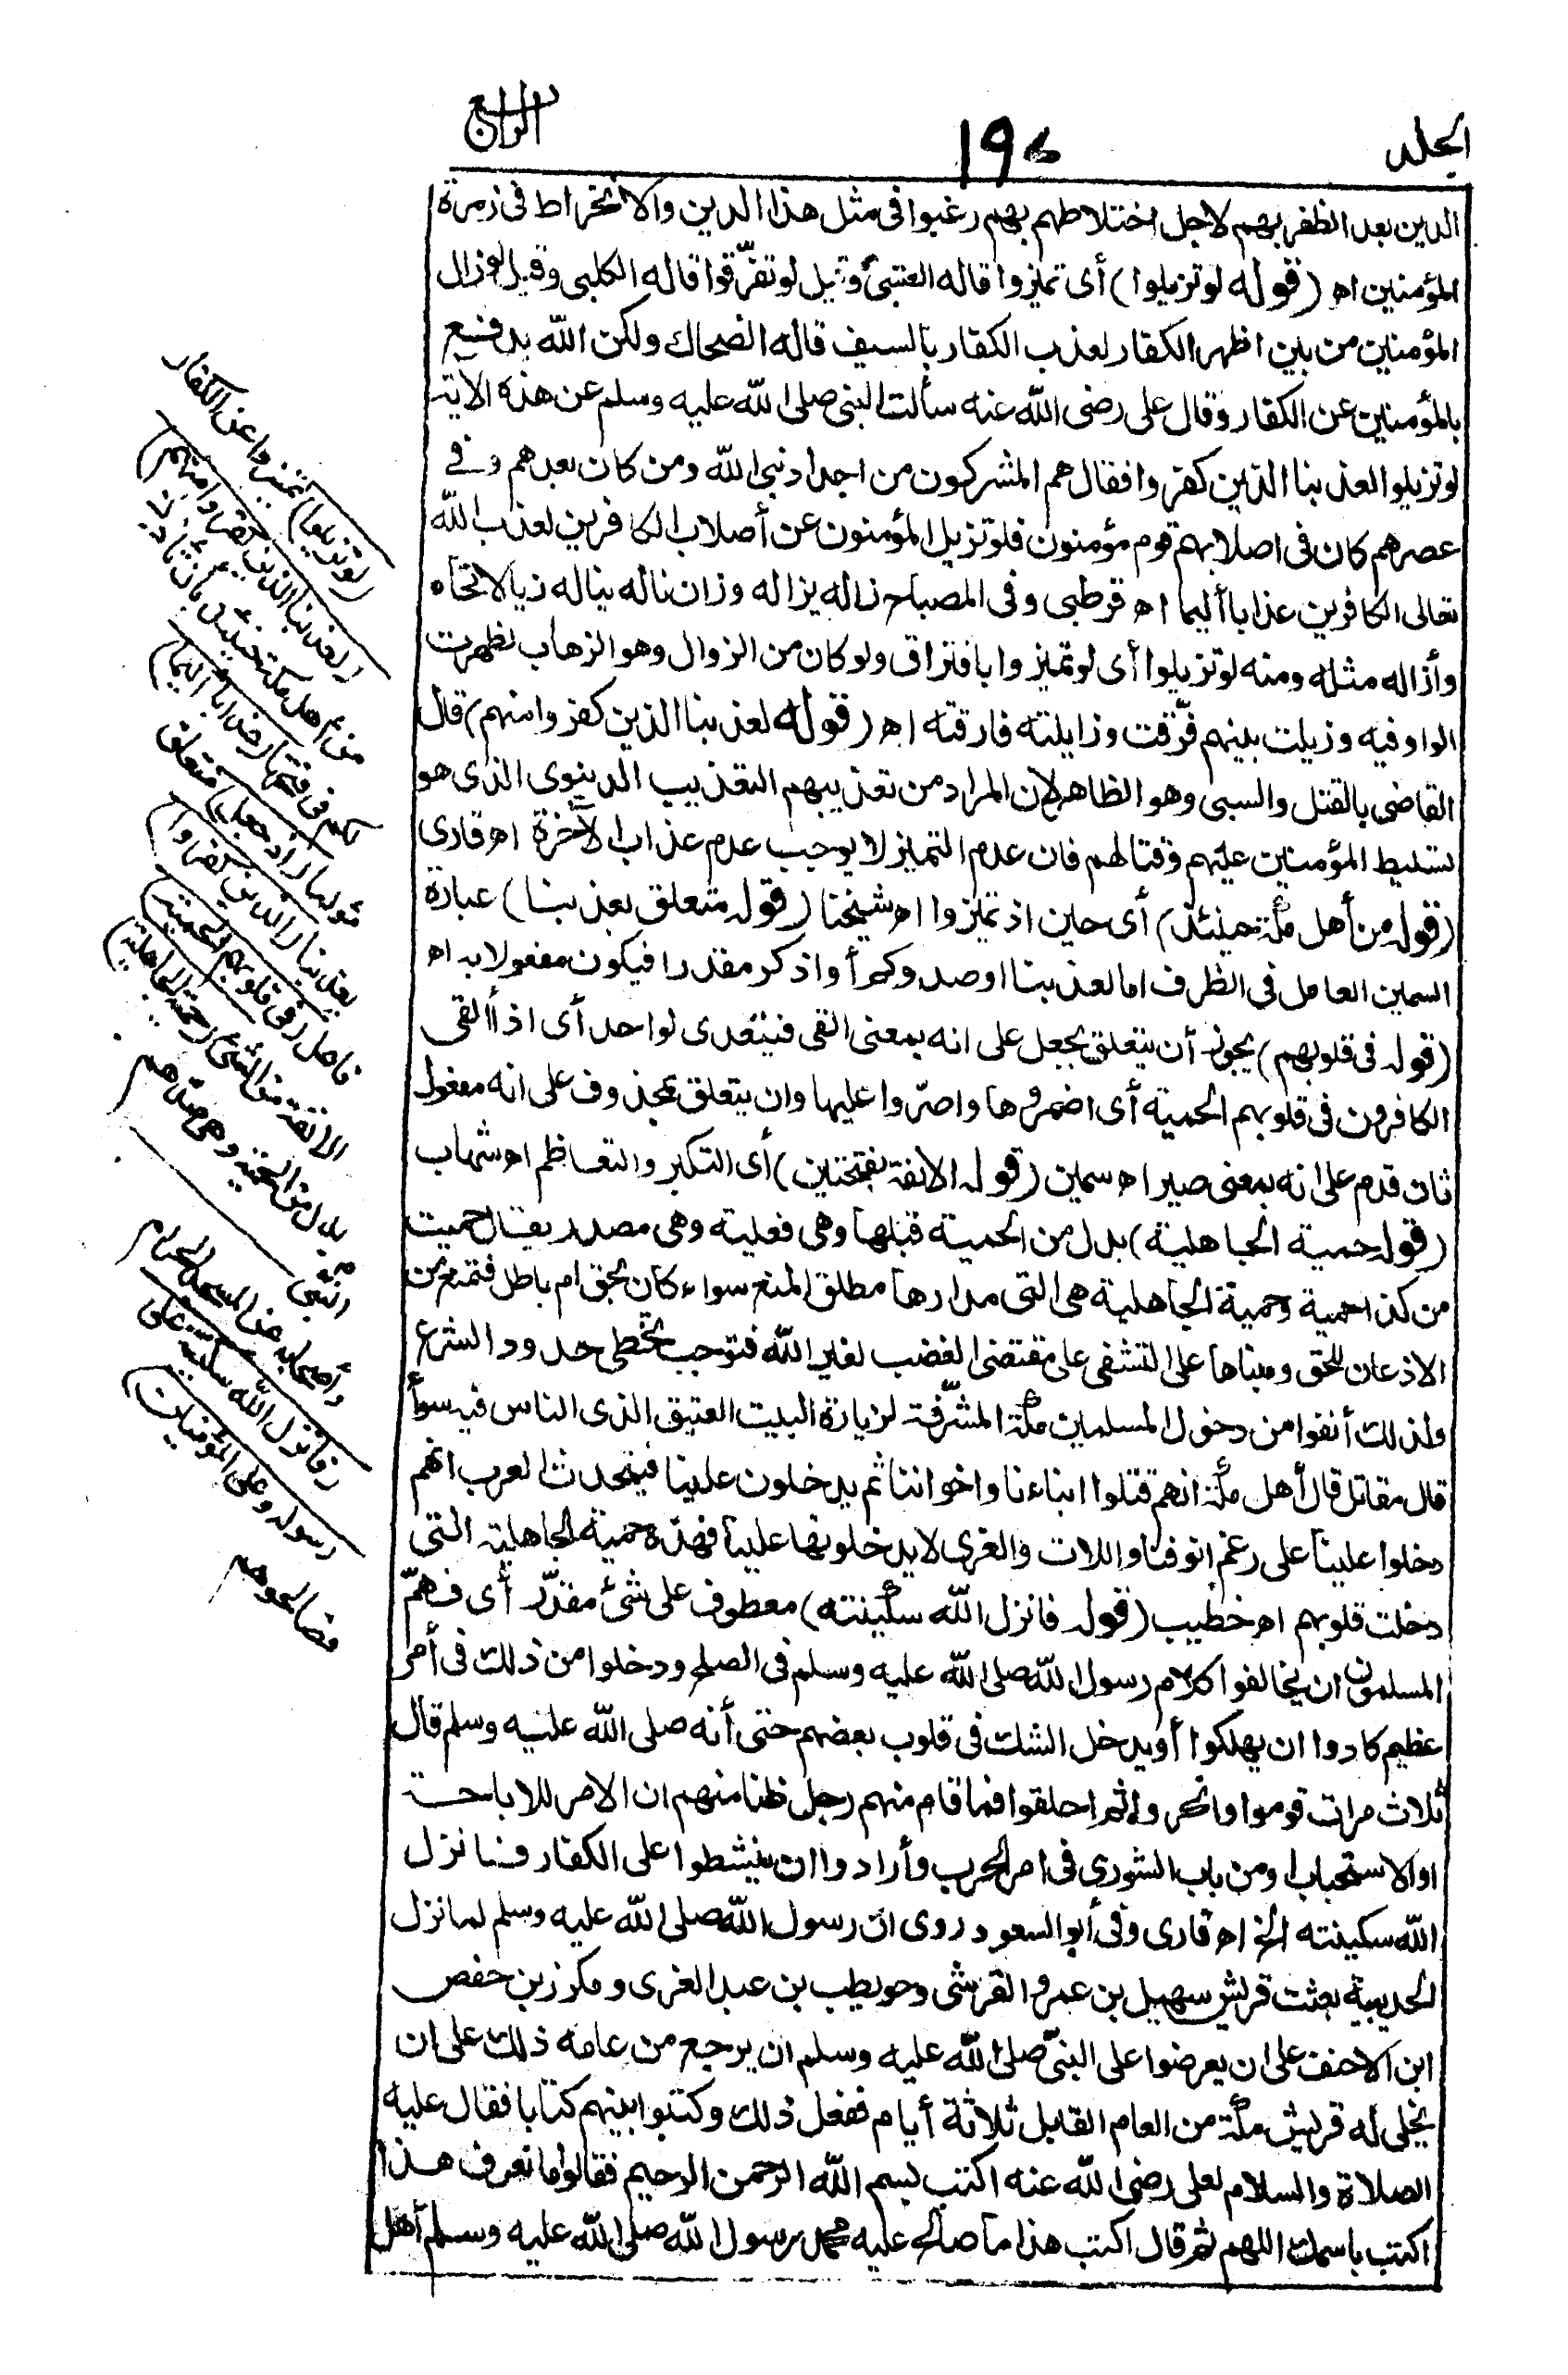 الجلد ١٩٧ الرابع
الدين بعد الظفر بهم لاجل اختلاطهم بهم رغبوا فى مثل هذا الدين والانخراط فى زمرة
المؤمنين اه (قوله لو تزيلوا) أى تميزوا قاله العتبىّ وقيل لو تفرّقوا قاله الكلبى وقيل لو زال
المؤمنين من بين اظهر الكفار لعذب الكفار بالسيف قاله الضحاك ولكن الله يدفع
بالمؤمنين عن الكفار وقال على رضى الله عنه سألت النبى صلى الله عليه وسلم عن هذه الاية
لو تزيلوا لعذبنا الذين كفروا فقال هم المشركون من اجداد نبى الله ومن كان بعدهم وفى
عصرهم كان فى اصلابهم قوم مؤمنون فلو تزيل المؤمنون عن أصلاب الكافرين لعذب الله
تعالى الكافرين عذابا أليما اه قرطبى وفى المصباح زاله يزاله وزان ناله يناله زيالا نحاه
وأزاله مثله ومنه لو تزيلوا أى لو تميزوا بافتراق ولو كان من الزوال وهو الذهاب لظهرت
الواو فيه وزيلت بينهم فرّقت وزايلته فارقته اه (قوله لعذبنا الذين كفروا منهم) قال
القاضى بالقتل والسبى وهو الظاهر لان المراد من تعذيبهم التعذيب الدنيوى الذى هو
تسليط المؤمنين عليهم وقتالهم فان عدم التميز لا يوجب عدم عذاب الآخرة اه قارى
(قوله من أهل مكة حينئذ) أى حين اذ تميزوا اه شيخنا (قوله متعلق بعذبنا) عبارة
السمين العامل فى الظرف اما لعذبنا او صدوكم أو اذكر مقدرا فيكون مفعولا به اه
(قوله فى قلوبهم) يجوز أن يتعلق بجعل على انه بمعنى القى فيتعدى لواحد أى اذ ألقى
الكافرون فى قلوبهم الحمية أى اضمروها واصرّوا عليها وان يتعلق بمحذوف على انه مفعول
ثان قدم على انه بمعنى صير اه سمين (قوله الانفة بفتحتين) أى التكبر والتعاظم اه شهاب
(قوله حمية الجاهلية) بدل من الحمية قبلها وهى فعلية وهى مصدر يقال حميت
من كذا حمية وحمية الجاهلية هى التى مدارها مطلق المنع سواء كان بحق ام باطل فتمنع من
الاذعان للحق ومبناها على التشفى على مقتضى الغضب لغير الله فتوجب تخطى حدود الشرع
ولذلك أنفوا من دخول المسلمين مكة المشرّفة لزيارة البيت العتيق الذى الناس فيه سواء
قال مقاتل قال أهل مكة انهم قتلوا ابناءنا واخواننا ثم يدخلون علينا فيتحدث العرب انهم
دخلوا علينا على رغم انوفنا واللات والعزى لا يدخلونها علينا فهذه حمية الجاهلية التى
دخلت قلوبهم اه خطيب (قوله فانزل الله سكينته) معطوف على شئ مقدّر أى فهمّ
المسلمون ان يخالفوا كلام رسول الله صلى الله عليه وسلم فى الصلح ودخلوا من ذلك فى أمر
عظيم كادوا ان يهلكوا أو يدخل الشك فى قلوب بعضهم حتى أنه صلى الله عليه وسلم قال
ثلاث مرات قوموا وانحروا ثم احلقوا فما قام منهم رجل ظنا منهم ان الامر للاباحة
او الاستحباب او من باب الشورى فى امر الحرب وأرادوا ان ينشطوا على الكفار فانزل
الله سكينته الخ اه قارى وفى أبو السعود روى ان رسول الله صلى الله عليه وسلم لما نزل
الحديبية بعثت قريش سهيل بن عمرو القرشى وحويطب بن عبد العزى ومكرز بن حفص
ابن الاحنف على ان يعرضوا على النبىّ صلى الله عليه وسلم ان يرجع من عامه ذلك على ان
يخلى له قريش مكة من العام القابل ثلاثة أيام ففعل ذلك وكتبوا بينهم كتابا فقال عليه
الصلاة والسلام لعلى رضى الله عنه اكتب بسم الله الرحمن الرحيم فقالوا ما نعرف هذا
اكتب باسمك اللهم ثم قال اكتب هذا ما صالح عليه محمد رسول الله صلى الله عليه وسلم أهل
(لو تزيلوا) تميزوا عن الكفار
(لعذبنا الذين كفروا منهم)
من أهل مكة حينئذ بأن نأذن
لكم فى فتحها (عذابا أليما)
مؤلما (اذ جعل) متعلق
بعذبنا (الذين كفروا)
فاعل (فى قلوبهم الحمية)
الانفة من الشئ (حمية الجاهلية)
بدل من الحمية وهى صدّهم
النبى
وأصحابه عن المسجد الحرام
(فانزل الله سكينته على
رسوله وعلى المؤمنين)
فصالحوهم